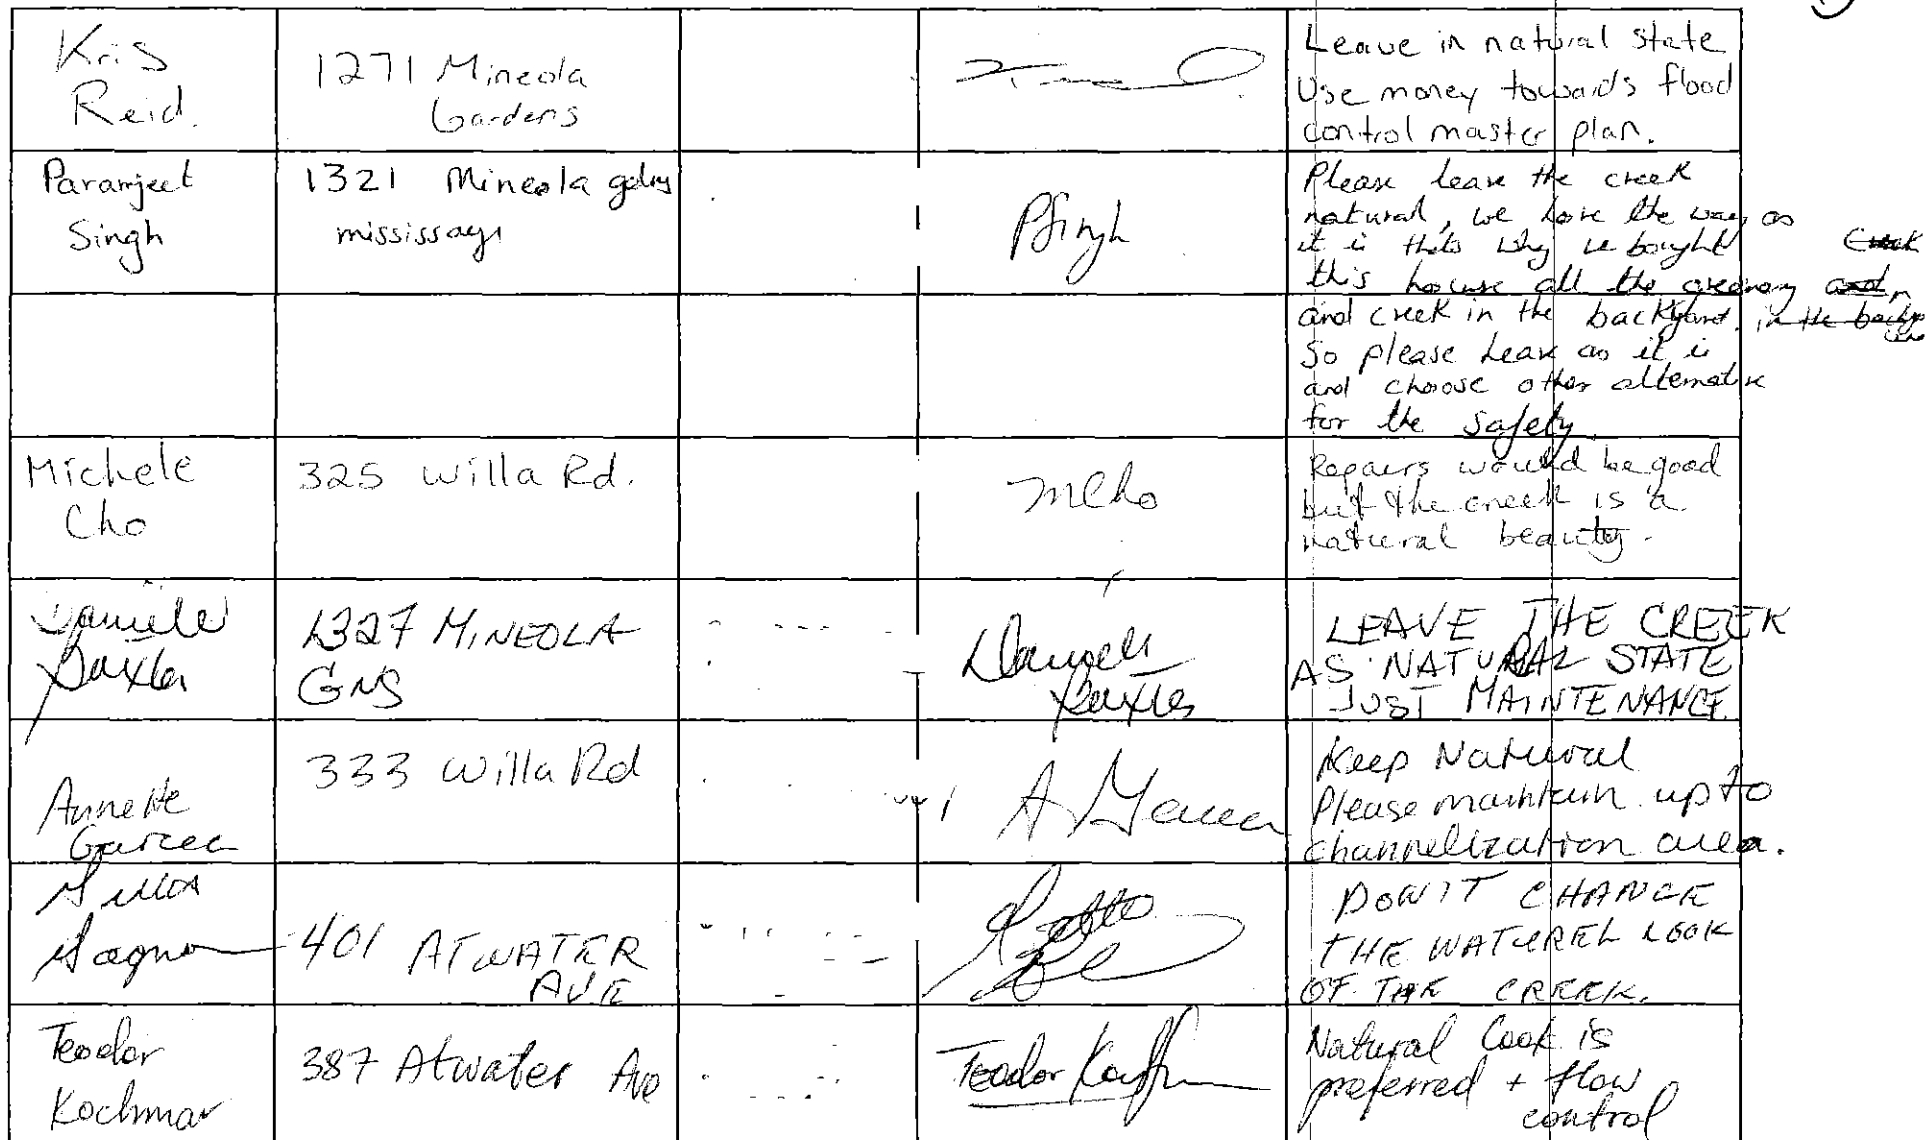 Kris
Reid.
1271 Mineola
Gardens
Leave in natural state
Use money towards flood
control master plan.
Paramjeet
Singh
1321 Mineola gdns
mississaga
PSingh
Please leave the creek
natural, we love the way as
it is thats why we bought
this house all the greenery and
and creek in the backyard. in the
So please leave as it is
and choose other alternative
for the safety.
Michele
Cho
325 Willa Rd.
MCho
Repairs would be good
but the creek is a
natural beauty.
Daniele
Baxter
1327 MINEOLA
GNS
Daniele
Baxter
LEAVE THE CREEK
AS NATURAL STATE
JUST MAINTENANCE
Annette
Garcea
333 Willa Rd
A Garcea
Keep Natural
Please maintain up to
channelization area.
Gagnon
401 ATWATER
AVE
DON'T CHANGE
THE NATUREL LOOK
OF THE CREEK.
Teodor
Kochmar
387 Atwater Ave
Teodor
Natural Look is
preferred + flow
control